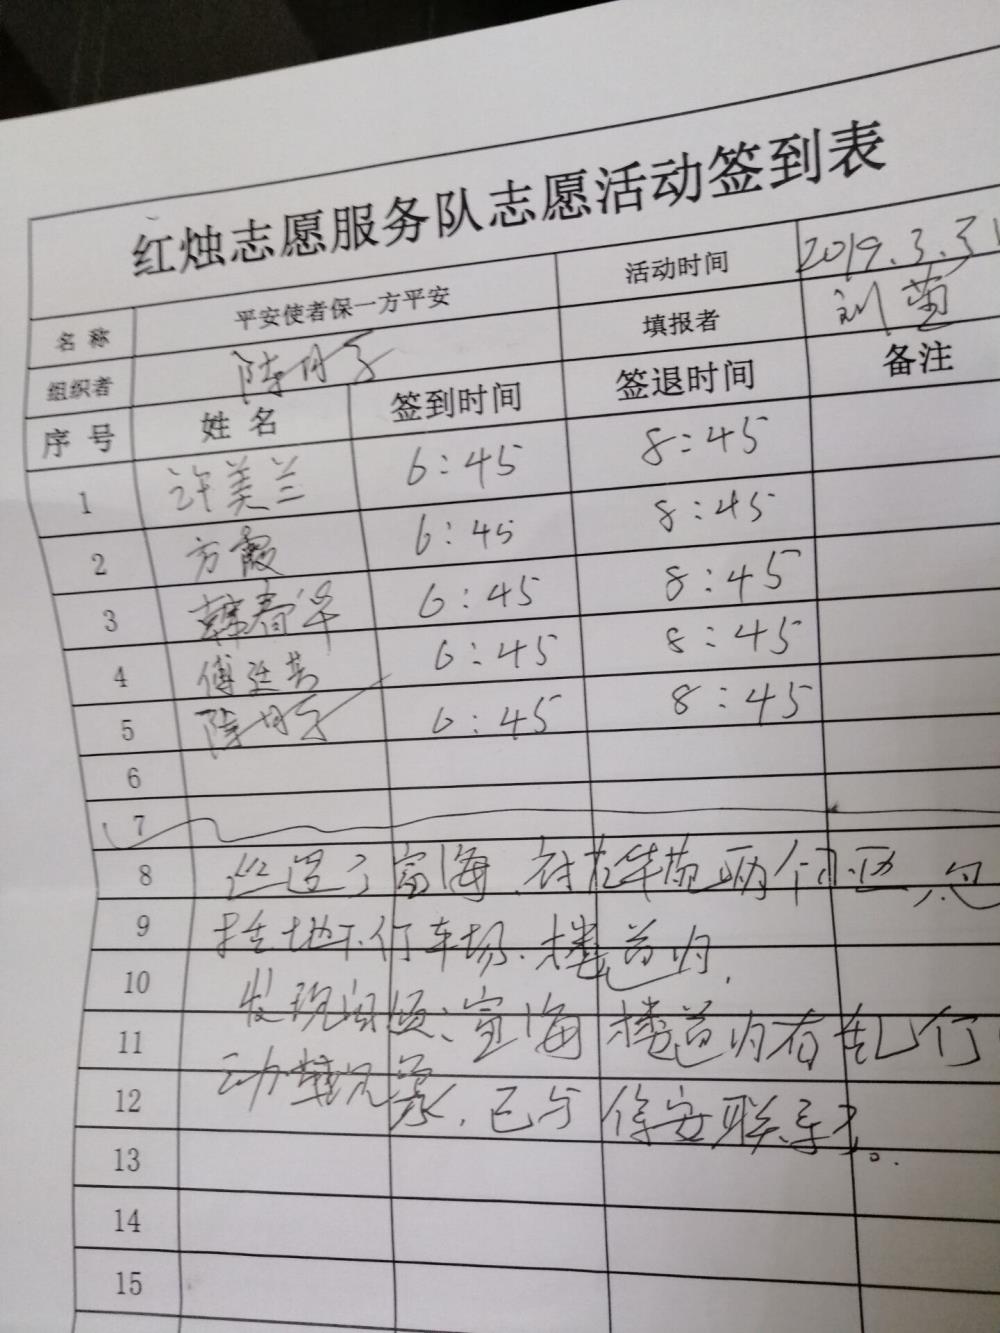 红烛志愿服务队志愿活动签到表
名 称 平安使者保一方平安 活动时间 2019.3.31
组织者 陆丹子 填报者 刘萤
序 号 姓 名 签到时间 签退时间 备注
1 许美兰 6:45 8:45
2 方霞 6:45 8:45
3 韩春华 6:45 8:45
4 傅廷芳 6:45 8:45
5 6:45 8:45
6
7
8 巡逻了富海、 两个小区,包
9 括地下停车场、楼道内,
10
11 发现问题:富海楼道内有乱停
12 动车现象,已与保安联系了。
13
14
15